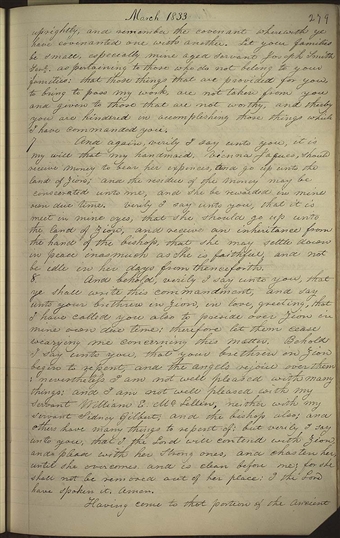 March 1833 279
uprightly, and remember the covenant wherewith ye
have covenanted one with another. Let your families
be small, especially mine aged servant Joseph Smith
Sen. as pertaining to those who do not belong to your
families: that those things that are provided for you
to bring to pass my work, are not taken from you
and given to those that are not worthy, and thereby
you are hindered in accomplishing those things which
I have commanded you.
7 And again, verily I say unto you, it is
my will that my handmaid, Vienna Jaques, should
receive money to bear her expenses, and go up unto the
land of Zion; and the residue of the money may be
consecrated unto me, and she be rewarded in mine
own due time. Verily I say unto you, that it is
meet in mine eyes, that she should go up unto
the land of Zion, and receive an inheritance from
the hand of the bishop, that she may settle down
in peace inasmuch as she is faithful, and not
be idle in her days from thenceforth.
8 And behold, verily I say unto you, that
ye shall write this commandment, and say
unto your brethren in Zion, in love, greeting, that
I have called you also to preside over Zion in
mine own due time: therefore let them cease
wearying me concerning this matter. Behold
I say unto you, that your brethren in Zion
begin to repent, and the angels rejoice over them
: nevertheless I am not well pleased with many
things; and I am not well pleased with my
servant William E. McLellin, neither with my
servant Sidney Gilbert; and the bishop also; and
others have many things to repent of: but verily I say
unto you, that I the Lord will contend with Zion
and plead with her strong ones, and chasten her
until she overcomes and is clean before me; for she
shall not be removed out of her place: I the Lord
have spoken it. Amen.
Having come to that portion of the ancient